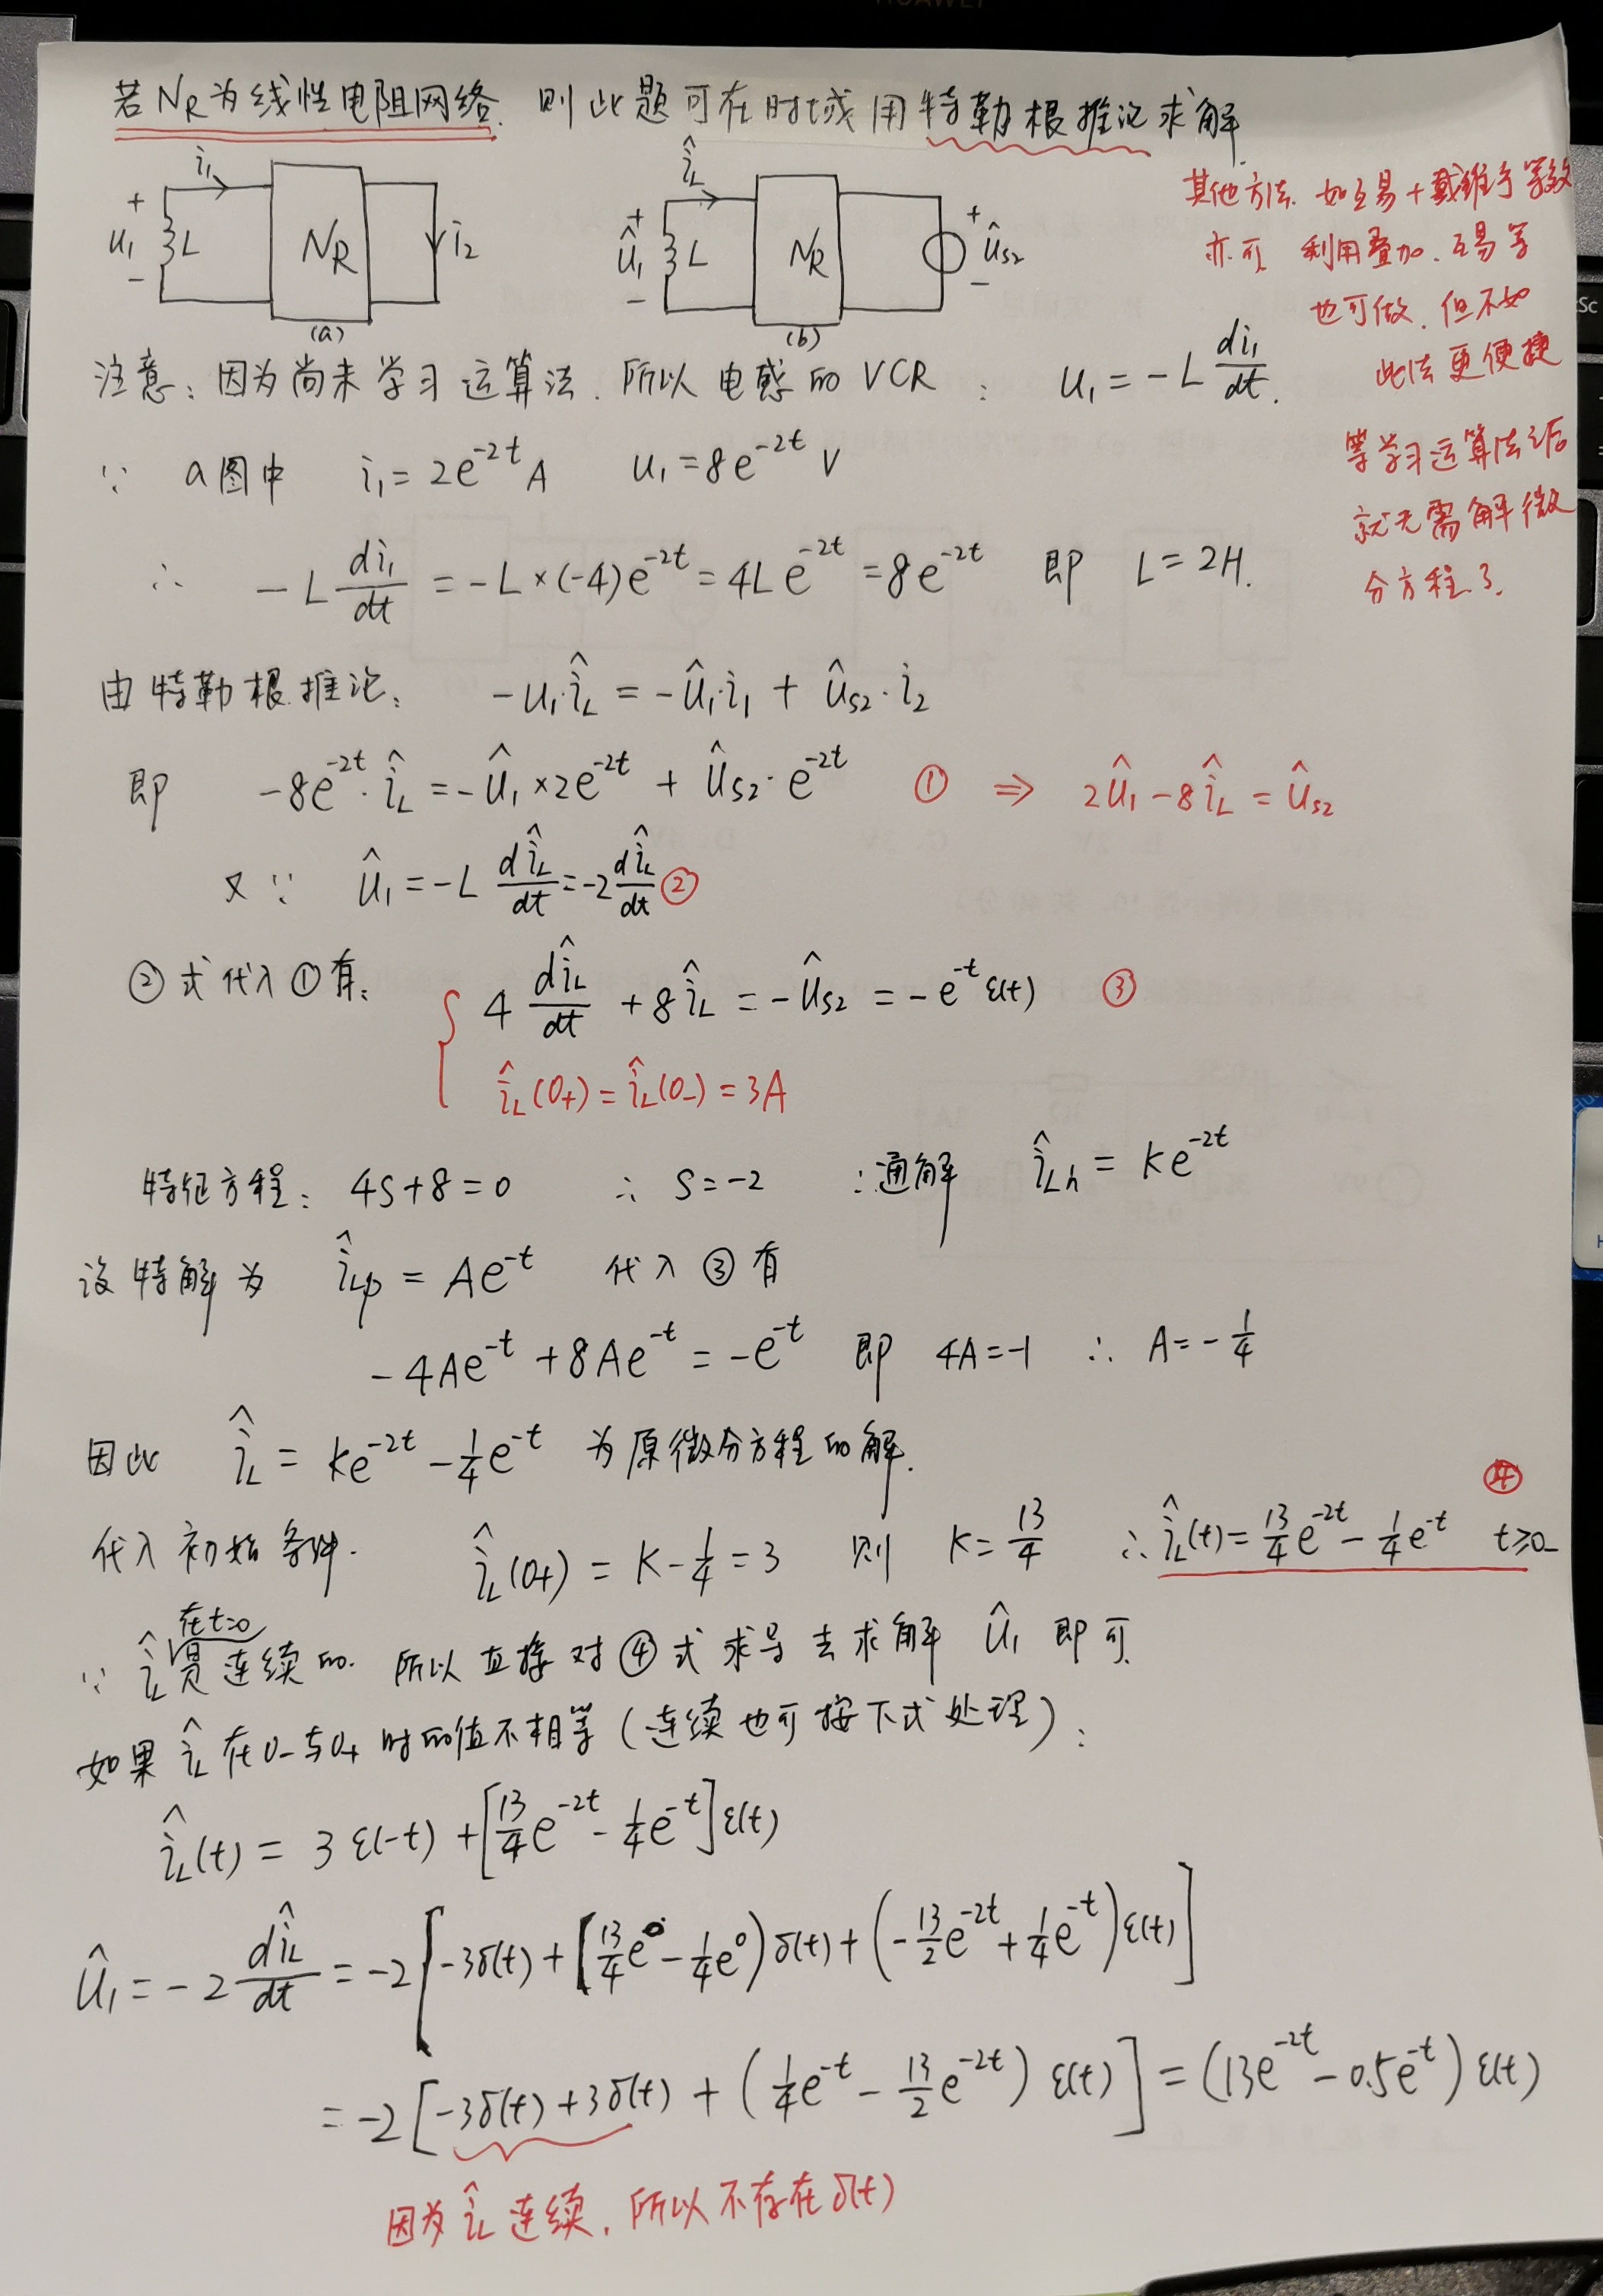 若NR为线性电阻网络. 则此题可在时域用特勒根推论求解.
i₁
+
u₁
-
L
NR
i₂
(a)
î_L
+
û₁
-
L
NR
+
û_S2
-
(b)
其他方法. 如互易+戴维宁等效
亦可 利用叠加. 互易等
也可做. 但不如
此法更便捷
等学习运算法之后
就无需解微
分方程了.
注意: 因为尚未学习运算法. 所以电感的VCR: u₁ = -L di₁/dt.
∵ a图中 i₁ = 2e^{-2t} A u₁ = 8e^{-2t} V
∴ -L di₁/dt = -L×(-4)e^{-2t} = 4Le^{-2t} = 8e^{-2t} 即 L = 2H.
由特勒根推论: -u₁·î_L = -û₁·i₁ + û_S2·i₂
即 -8e^{-2t}·î_L = -û₁×2e^{-2t} + û_S2·e^{-2t} ① ⇒ 2û₁ - 8î_L = û_S2
又∵ û₁ = -L dî_L/dt = -2 dî_L/dt ②
②式代入①有: { 4 dî_L/dt + 8î_L = -û_S2 = -e^{-t}ε(t) ③
î_L(0₊) = î_L(0₋) = 3A
特征方程: 4S+8=0 ∴ S=-2 ∴通解 î_Lh = Ke^{-2t}
设特解为 î_Lp = Ae^{-t} 代入③有
-4Ae^{-t} + 8Ae^{-t} = -e^{-t} 即 4A=-1 ∴ A=-1/4
因此 î_L = Ke^{-2t} - 1/4 e^{-t} 为原微分方程的解.
代入初始条件. î_L(0₊) = K - 1/4 = 3 则 K = 13/4 ∴ î_L(t) = 13/4 e^{-2t} - 1/4 e^{-t} t≥0₋ ④
∵ î_L在t=0是连续的. 所以直接对④式求导去求解 û₁ 即可.
如果 î_L 在0₋与0₊时的值不相等(连续也可按下式处理):
î_L(t) = 3ε(-t) + [13/4 e^{-2t} - 1/4 e^{-t}]ε(t)
û₁ = -2 dî_L/dt = -2[-3δ(t) + (13/4 e⁰ - 1/4 e⁰)δ(t) + (-13/2 e^{-2t} + 1/4 e^{-t})ε(t)]
= -2[-3δ(t)+3δ(t) + (1/4 e^{-t} - 13/2 e^{-2t})ε(t)] = (13e^{-2t} - 0.5e^{-t})ε(t)
因为 î_L 连续. 所以不存在δ(t)